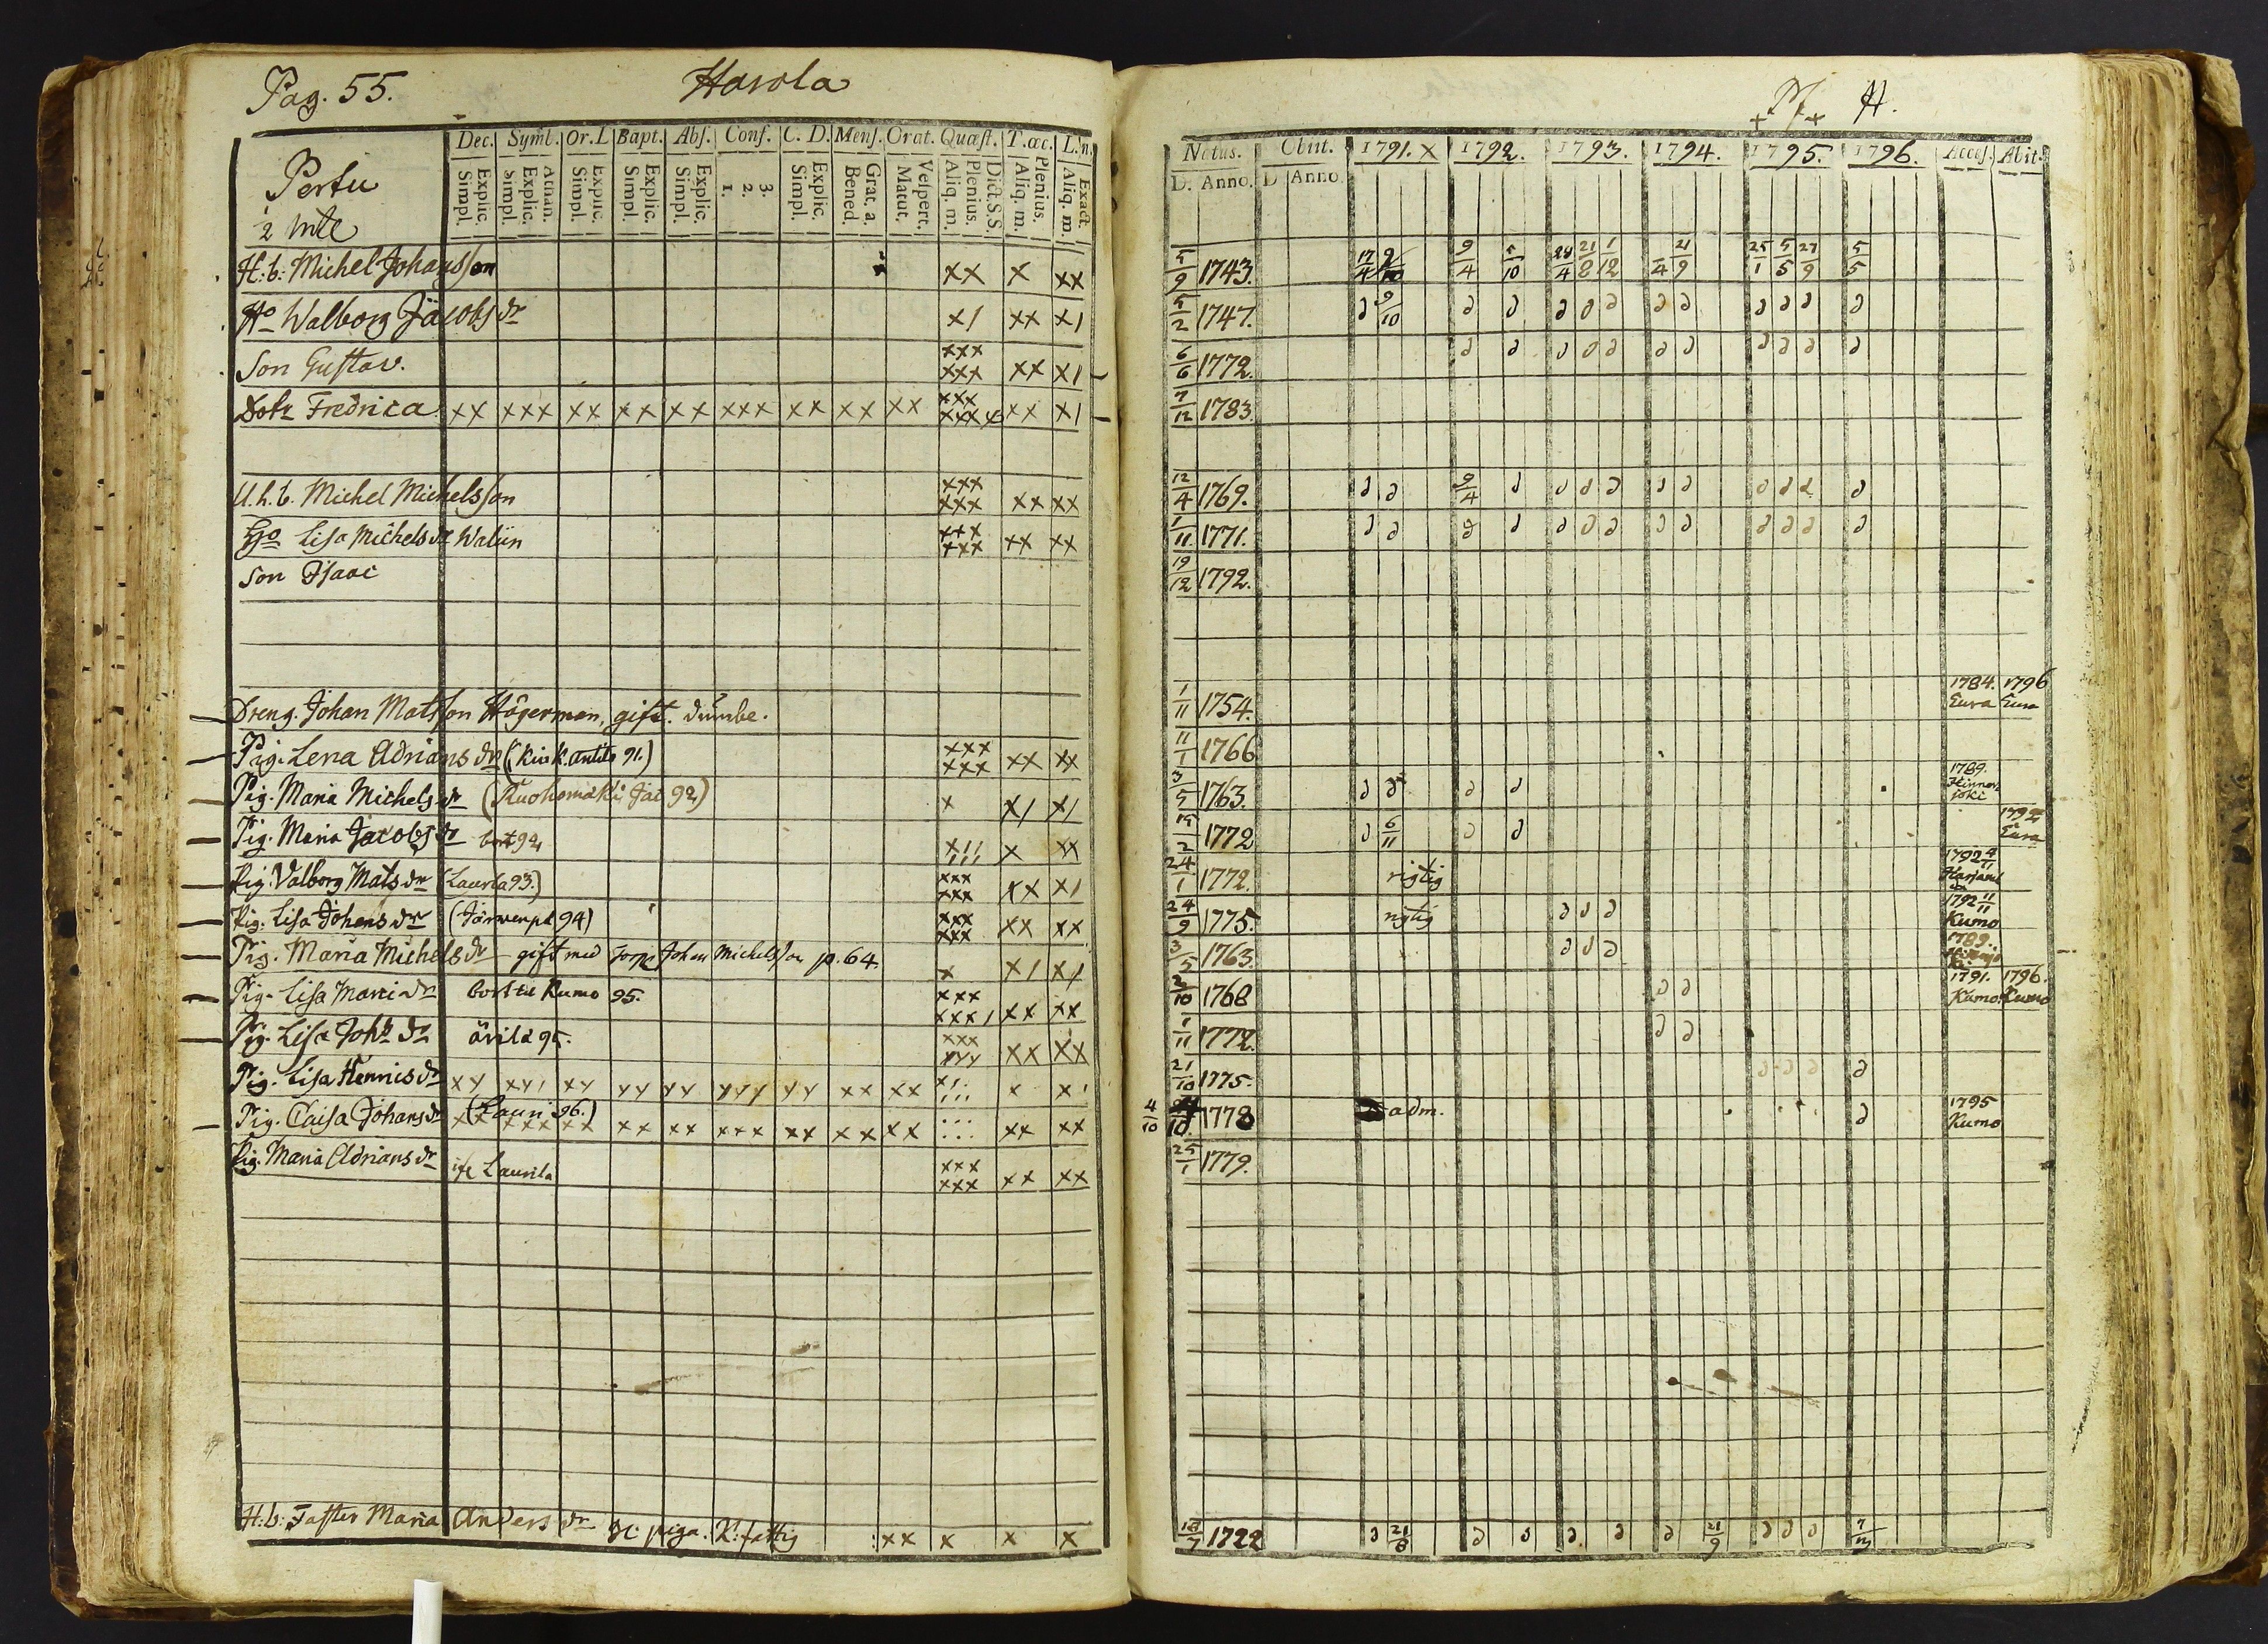 Pag. 55. Harola
Dec. Symb. Or. L Bapt. Abs. Conf. C. D. Mens. Orat. Quæst. T. œc. L. n.
Explic. Simpl. Athan. Explic. Simpl. Explic. Simpl. Explic. Simpl. Explic. Simpl. 3. 2. 1. Explic. Simpl. Grat. a. Bened. Vespert. Matut. Dict. S. S. Plenius. Aliq. m. Plenius. Aliq. m. Exact. Aliq. m.
Pertu
2 mtl
H: b: Michel Johansson xx x xx
Ho Walborg Jacobs dr x/ xx x/
Son Gustav. xxx xxx xx x/
Dotr Fredrica xx xxx xx xx xx xxx xx xx xx xxx xxxx xx x/
U. h. b. Michel Michelsson xxx xxx xx xx
Lisa Michels dr Walin xxx xxx xx xx
Son Isaac
Dreng. Johan Matsson Hägerman, gift. dumbe.
Pig. Lena Adrians dr xxx xxx xx xx
Pig. Maria Michels dr (Kuohomäki Jac 92) x x/ x/
Pig. Maria Jacobs dr bort 92 x// /// x xx
Pig. Valborg Mats dr (Laurla 93.) xxx xxx xx x/
Pig. Lisa Johans dr (Järvenpä 94) xxx xxx xx xx
Pig. Maria Michels dr gift med Torp. Johan Michelsson p. 64. x x/ x/
Pig. Lisa Marci dr bort til Kumo 95. xxx xxx/ xx xx
Pig. Lisa Joh: dr ävilä 95. xxx xxx xx xx
Pig. Lisa Hennis dr xx xx/ xx xx xx xxx xx xx xx x/ /// x x/
Pig. Caisa Johans dr (Lauri 96.) xx xxx xx xx xx xxx xx xx xx xx xx
Pig. Maria Adrians dr Laurila xxx xxx xx xx
H: b: Faster Maria Anders dr piga. fattig xx x x x
H.
Natus. Obiit. 1791. x 1792. 1793. 1794. 1795. 1796. Acces. Abit.
D. Anno. D Anno.
5/9 1743. 17/4 9/10 9/4 5/10 28/4 21/8 1/12 /4 21/9 25/1 5/5 27/9 5/5
5/2 1747. 9/10
6/6 1772.
7/12 1783.
12/4 1769. 9/4
1/11 1771.
19/12 1792.
1/11 1754. 1784. Eura 1796 Eura
11/1 1766
3/5 1763. 1789. Hinnerjoki
15/2 1772 6/11 1792 Eura
24/1 1772. rigtig 1792 4/11 Harjaval
24/9 1775. rigtig 1792 11/11 Kumo
3/5 1763. 1789.
2/10 1768 1791. Kumo 1796. Kumo
1/11 1772.
21/10 1775.
4/10 1778 adm. 1795 Kumo
25/1 1779.
18/7 1722 21/8 21/9